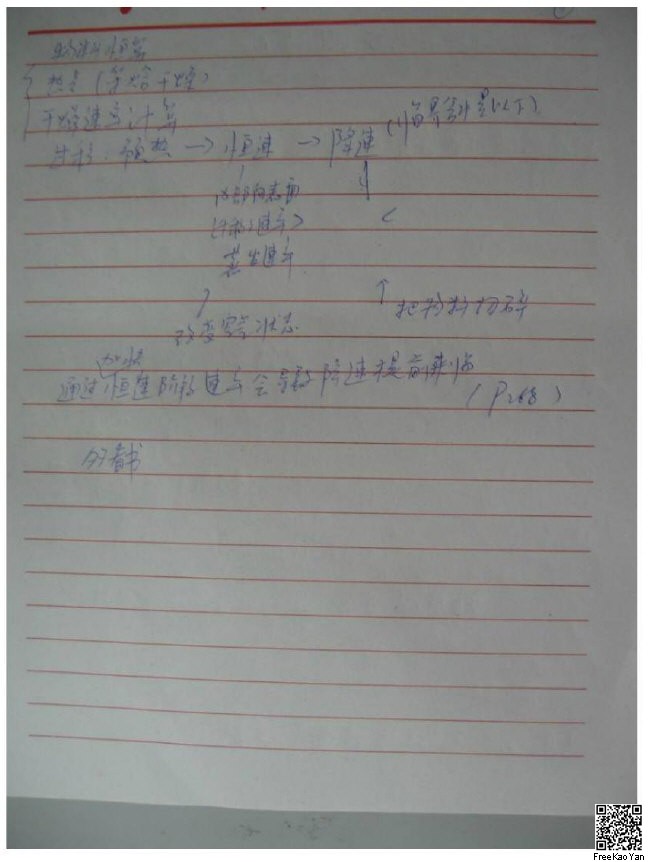 物料衡算
热量（等焓干燥）
干燥速率计算
过程：预热 → 恒速 → 降速（临界含水量以下）
内部向表面
扩散速率 > <
蒸发速率
↑ 把物料切碎
改变空气状态
加快
通过恒速阶段速率会导致降速提前来临
（P268）
多看书
FreeKaoYan